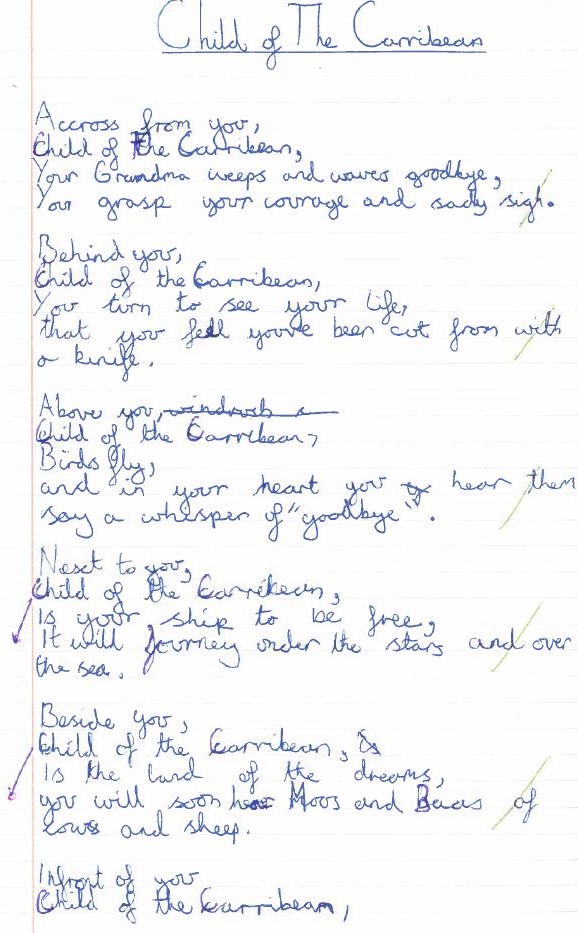 Child of The Carribean
Accross from you,
Child of The Carribean,
Your Grandma weeps and waves goodbye,
You grasp your courage and sadly sigh.
Behind you,
Child of the Carribean,
You turn to see your life,
that you fell youve been cut from with
a knife.
Above you, windrush
Child of the Carribean,
Birds fly,
and in your heart you hear them
say a whisper of "goodbye".
Next to you,
Child of the Carribean,
Is your ship to be free,
It will journey under the stars and over
the sea.
Beside you,
Child of the Carribean,
Is the land of the dreams,
you will soon hear Moos and Baas of
cows and sheep.
Infront of you
Child of the Carribean,